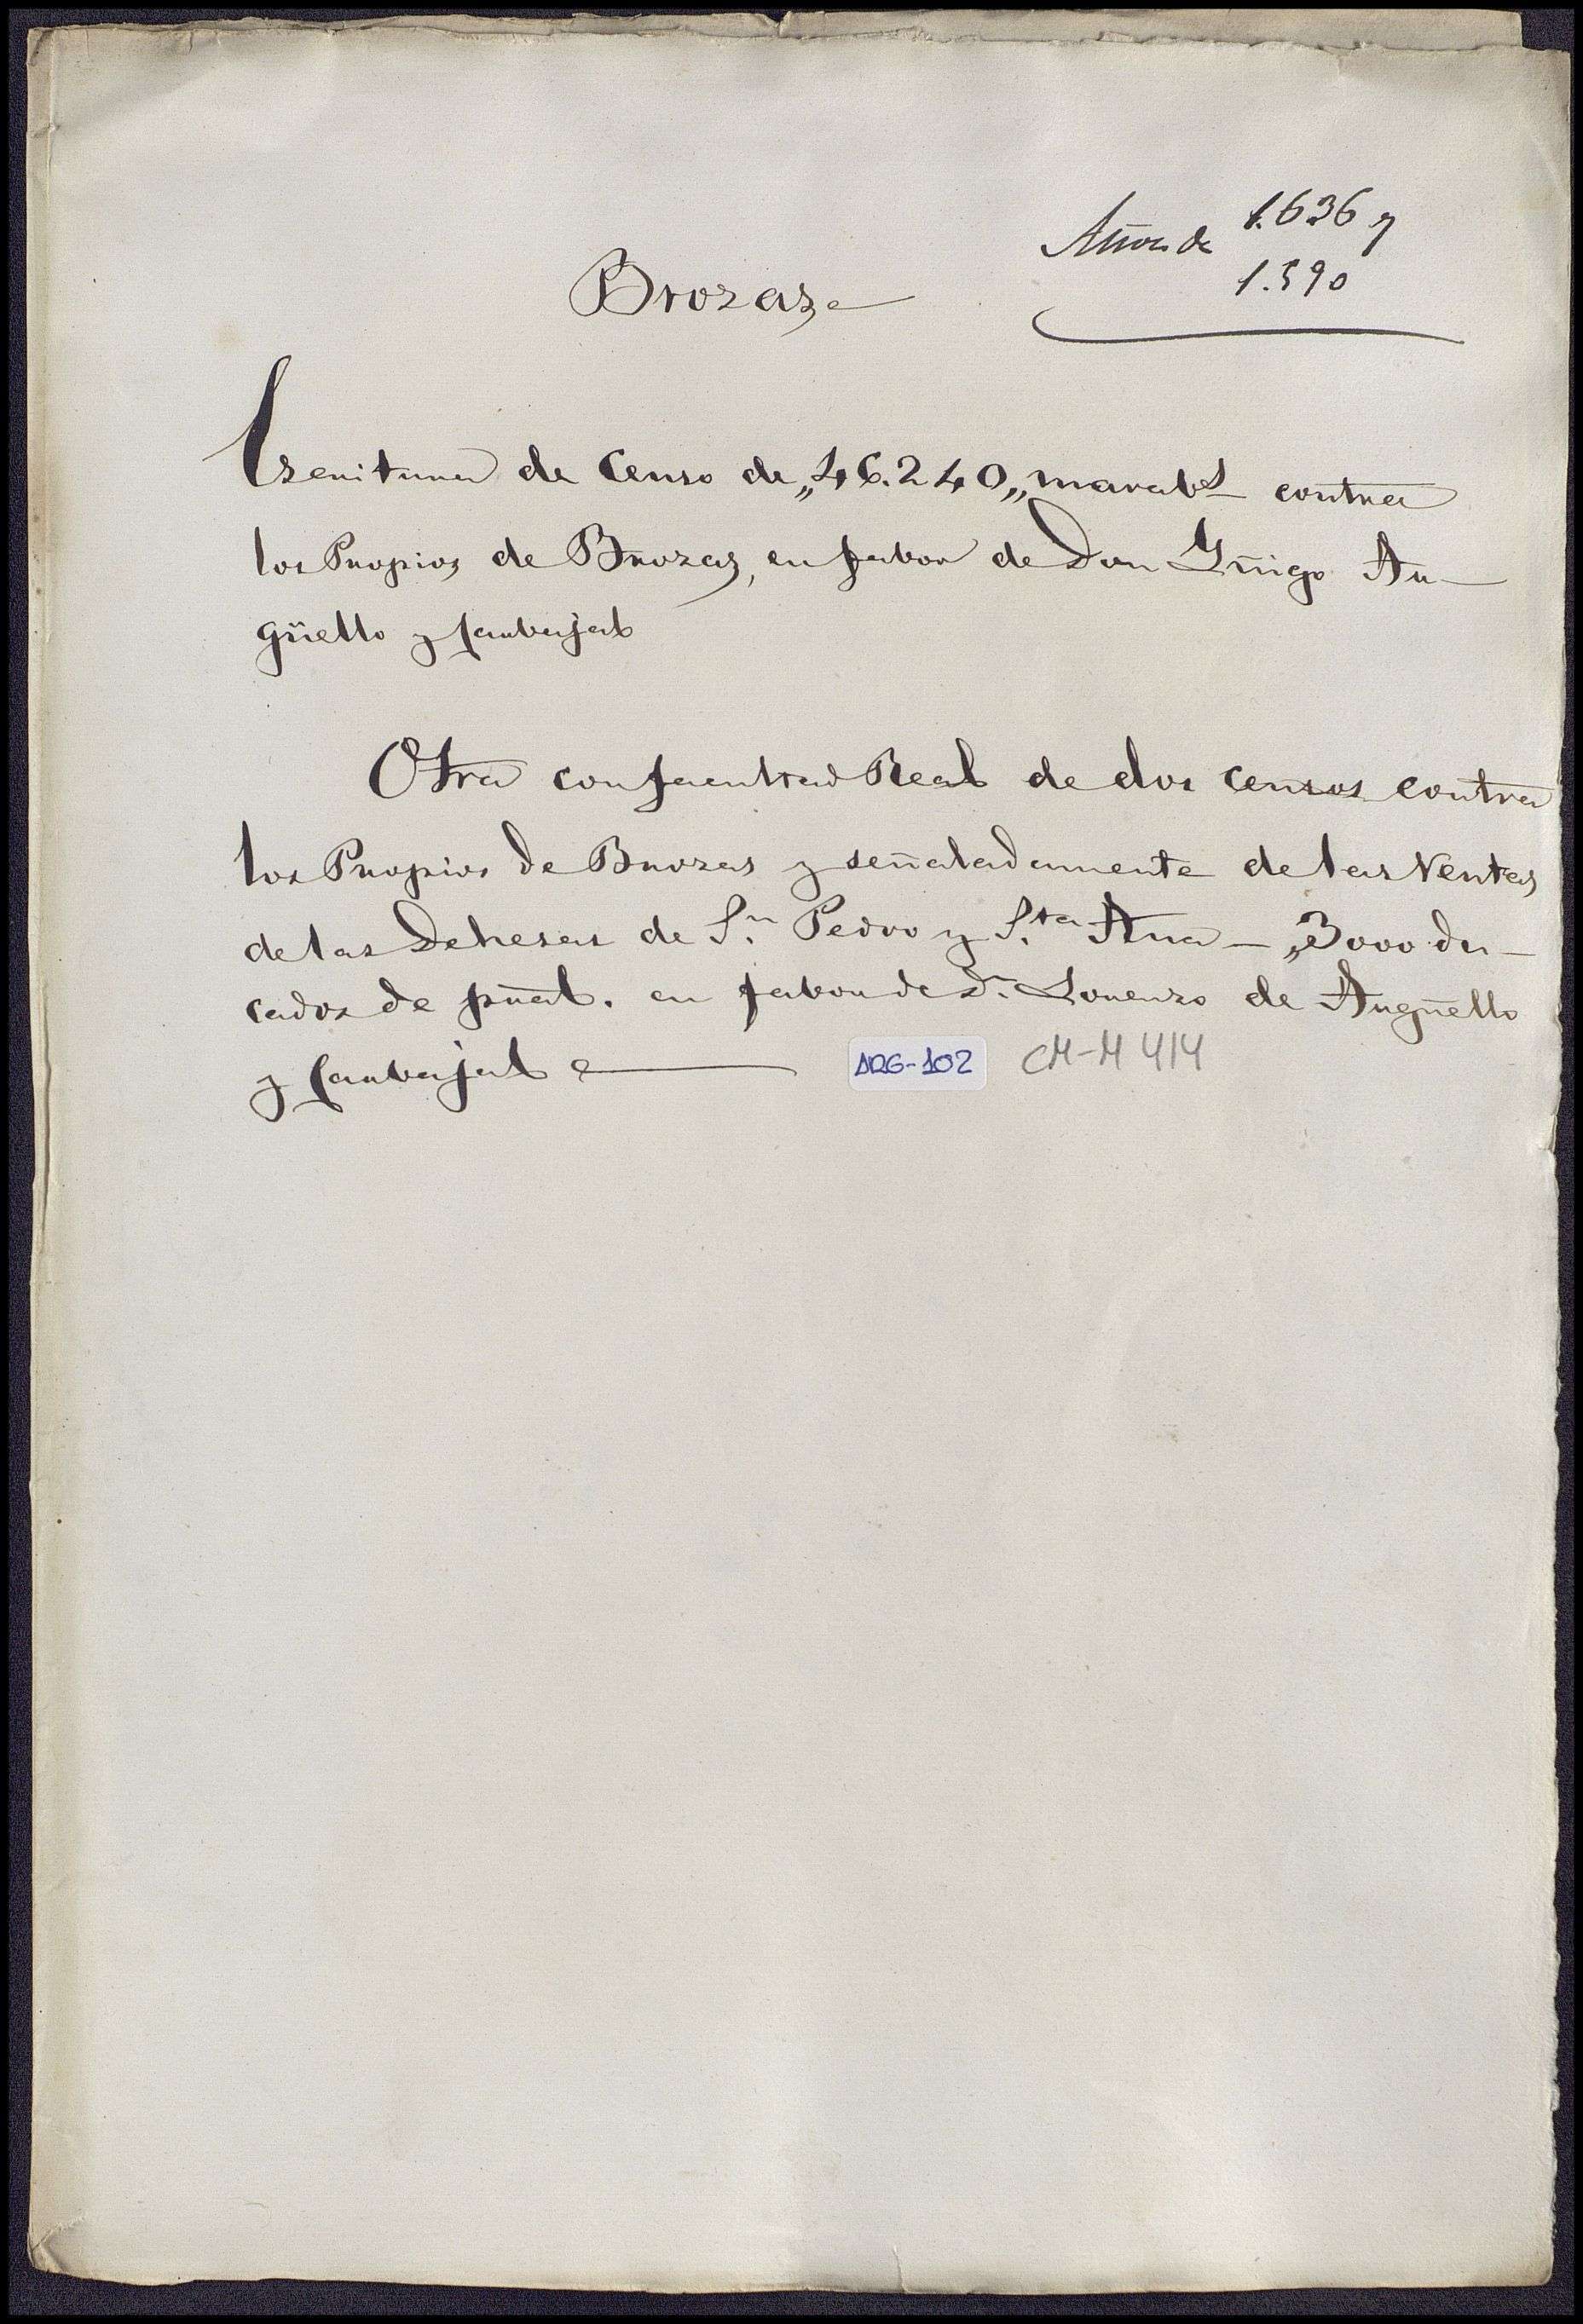 Años de 1.636 y
1.590
Brozas
Escritura de Censo de „46.240„ marabs contra
los Propios de Brozas, en fabor de Don Yñigo Ar-
güello y Carbajal
Otra con facultad Real de dos censos contra
los Propios de Brozas y señaladamente de las Ventas
de las Dehesas de Sn. Pedro y Sta. Ana - „3000 du-
cados de pñal. en fabor de Dn. Lorenzo de Argüello
y Carbajal
ARG-102 CM-M 4/4